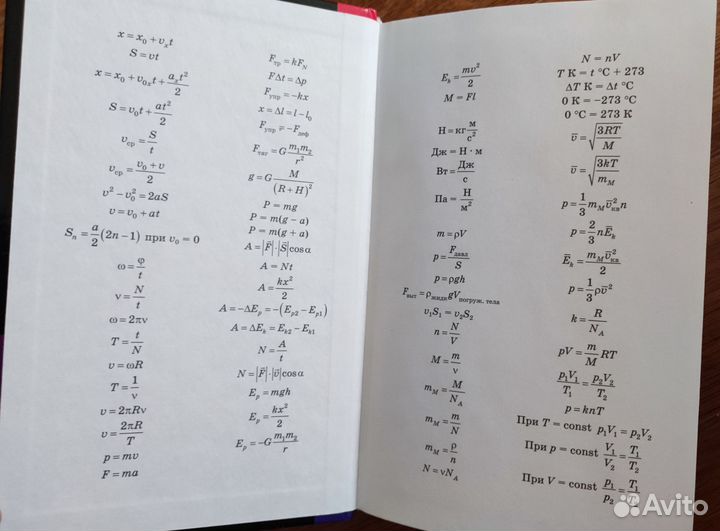 x = x₀ + υₓt
S = υt
x = x₀ + υ₀ₓt + aₓt²/2
S = υ₀t + at²/2
υ_ср = S/t
υ_ср = (υ₀ + υ)/2
υ² − υ₀² = 2aS
υ = υ₀ + at
Sₙ = a/2 (2n − 1) при υ₀ = 0
ω = φ/t
ν = N/t
ω = 2πν
T = t/N
υ = ωR
T = 1/ν
υ = 2πRν
υ = 2πR/T
p = mυ
F = ma
F_тр = kF_N
FΔt = Δp
F_упр = −kx
x = Δl = l − l₀
F_упр = −F_деф
F_тяг = G m₁m₂/r²
g = G M/(R + H)²
P = mg
P = m(g − a)
P = m(g + a)
A = |F⃗|·|S⃗|cos α
A = Nt
A = kx²/2
A = −ΔE_p = −(E_p2 − E_p1)
A = ΔE_k = E_k2 − E_k1
N = A/t
N = |F⃗|·|υ⃗|cos α
E_p = mgh
E_p = kx²/2
E_p = −G m₁m₂/r
E_k = mυ²/2
M = Fl
Н = кг м/с²
Дж = Н · м
Вт = Дж/с
Па = Н/м²
m = ρV
p = F_давл/S
p = ρgh
F_выт = ρ_жидк gV_погруж. тела
υ₁S₁ = υ₂S₂
n = N/V
M = m/ν
m_M = M/N_A
m_M = m/N
m_M = ρ/n
N = νN_A
N = nV
T К = t °C + 273
ΔT К = Δt °C
0 К = −273 °C
0 °C = 273 К
υ̅ = √(3RT/M)
υ̅ = √(3kT/m_M)
p = 1/3 m_M υ̅²_кв n
p = 2/3 nE̅_k
E̅_k = m_M υ̅²_кв/2
p = 1/3 ρυ̅²
k = R/N_A
pV = m/M RT
p₁V₁/T₁ = p₂V₂/T₂
p = knT
При T = const p₁V₁ = p₂V₂
При p = const V₁/V₂ = T₁/T₂
При V = const p₁/p₂ = T₁/T₂
Avito